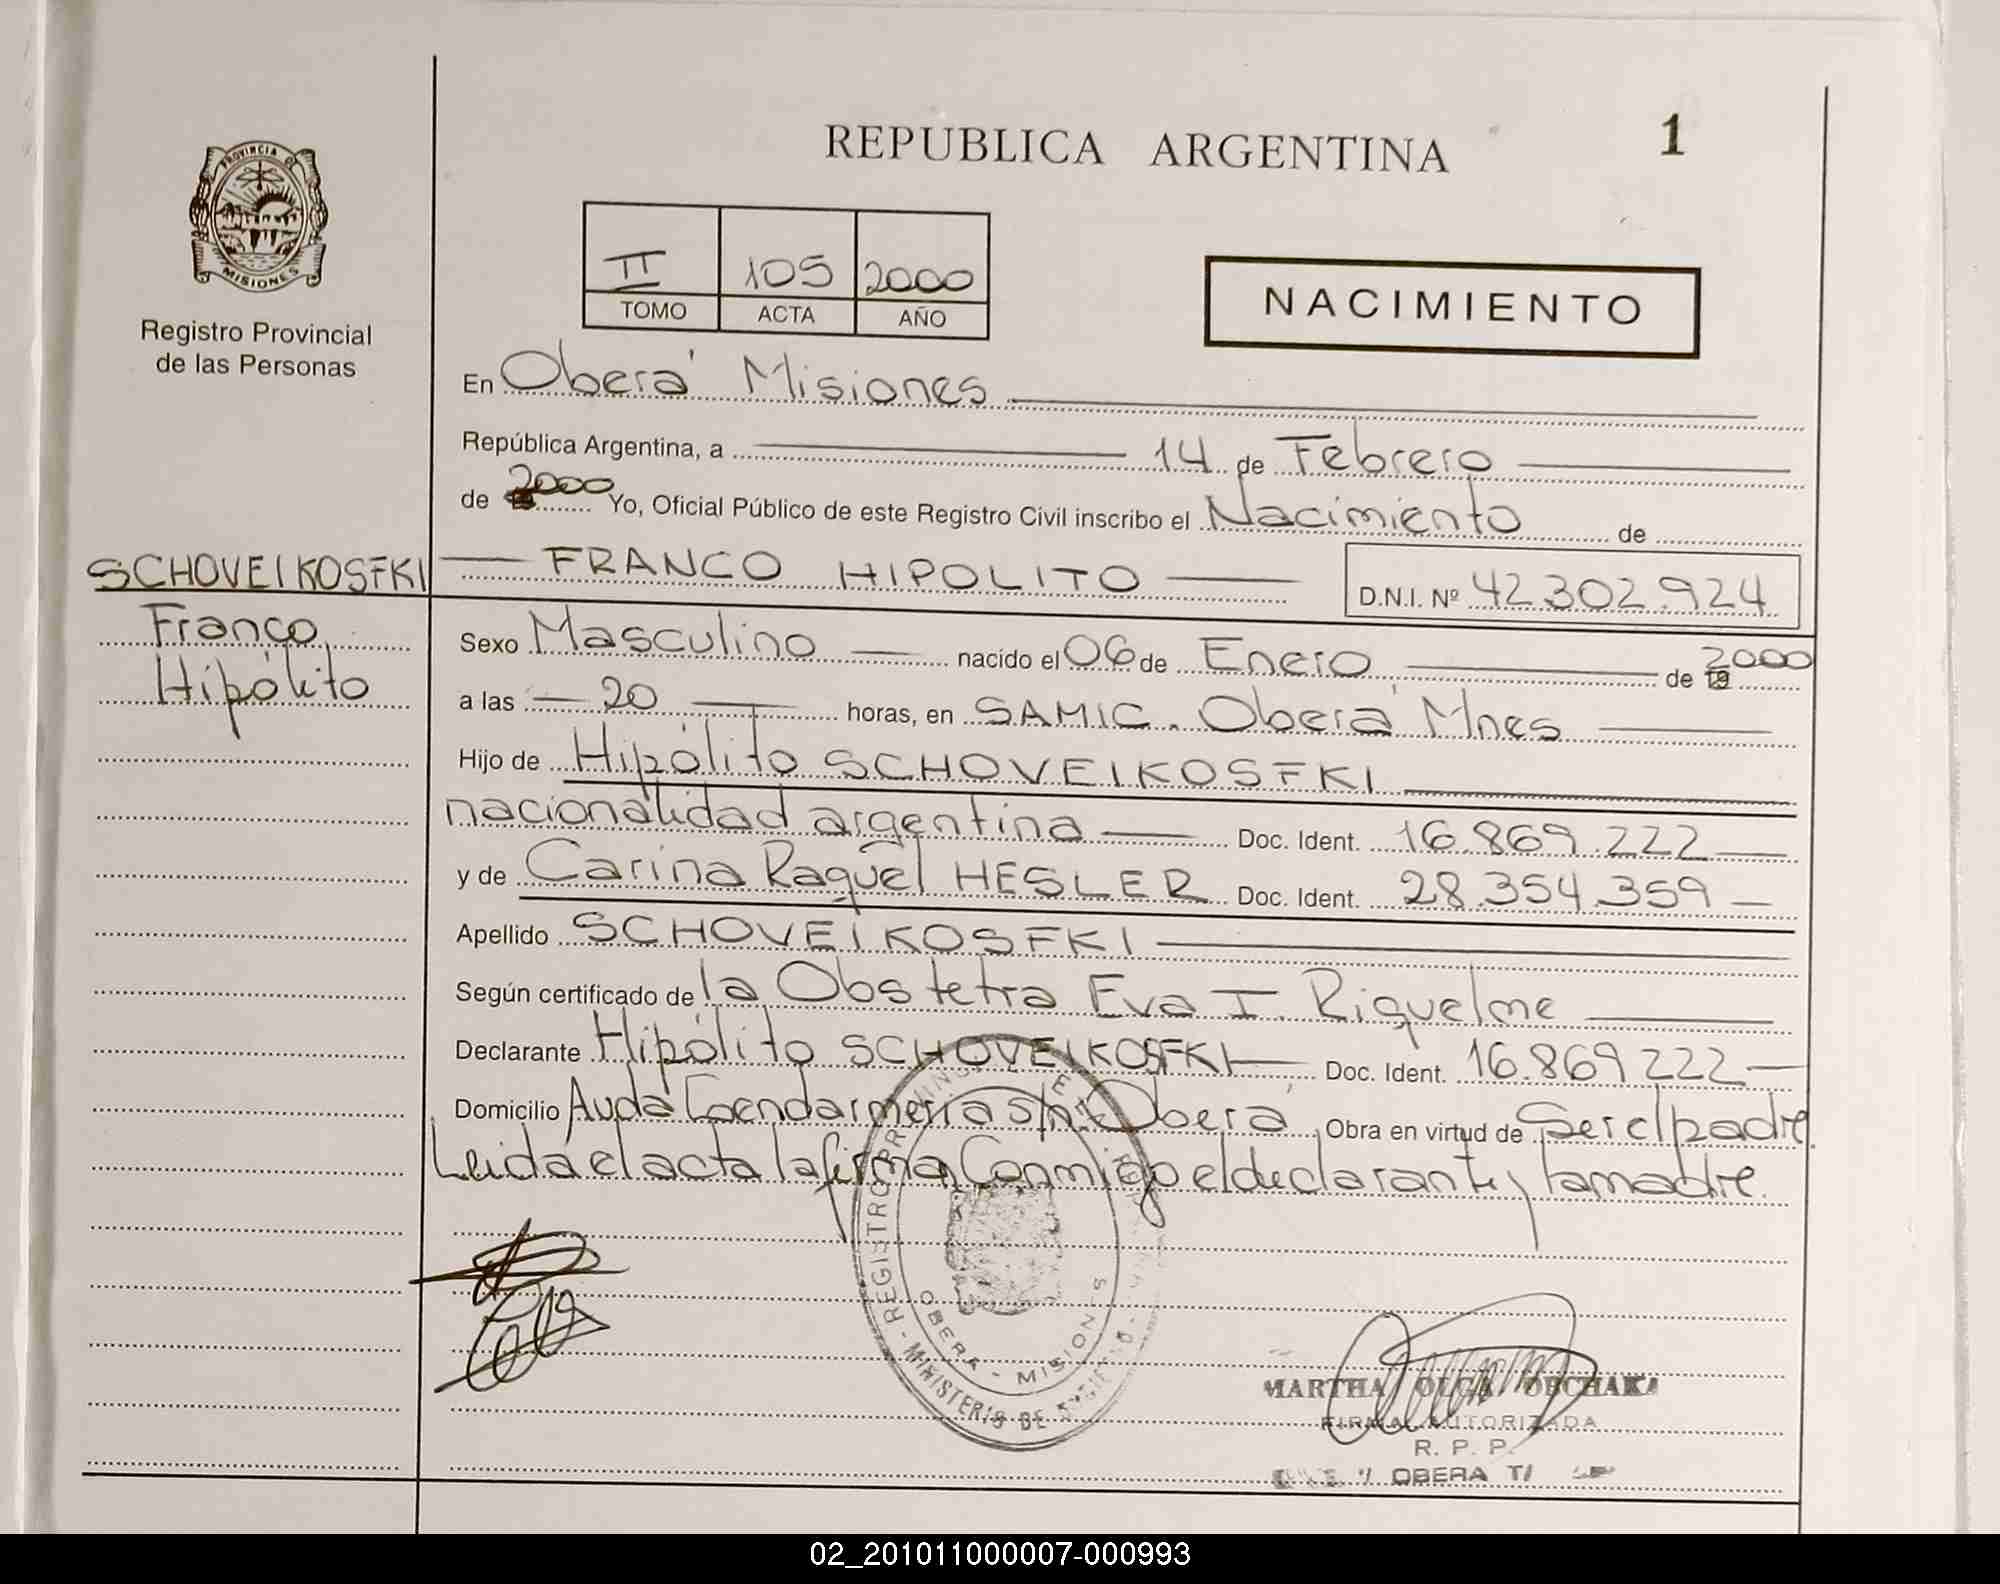 REPUBLICA ARGENTINA
1
PROVINCIA DE
MISIONES
Registro Provincial
de las Personas
II 105 2000
TOMO ACTA AÑO
NACIMIENTO
En Oberá Misiones
República Argentina, a 14 de Febrero
de 2000 Yo, Oficial Público de este Registro Civil inscribo el Nacimiento de
SCHOVEIKOSFKI FRANCO HIPOLITO D.N.I. Nº 42.302.924
Franco
Hipólito
Sexo Masculino nacido el 06 de Enero de 2000
a las 20 horas, en SAMIC. Oberá Mnes
Hijo de Hipólito SCHOVEIKOSFKI
nacionalidad argentina Doc. Ident. 16.869.222
y de Carina Raquel HESLER Doc. Ident. 28.354.359
Apellido SCHOVEIKOSFKI
Según certificado de la Obstetra Eva I. Riquelme
Declarante Hipólito SCHOVEIKOSFKI Doc. Ident. 16.869222
Domicilio Avda Gendarmeria s/n. Oberá Obra en virtud de Ser el padre.
Leida el acta la firma Conmigo el declarante y la madre.
REGISTRO
MINISTERIO DE
OBERA - MISIONES
MARTHA OLGA
FIRMA AUTORIZADA
R. P. P.
OBERA
02_201011000007-000993